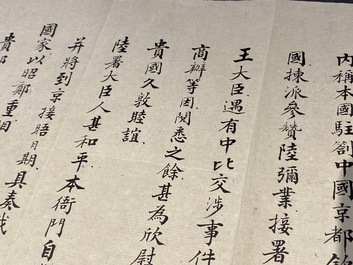 內稱本國駐劄中國京都欽
國揀派參贊陸彌業接署
王大臣遇有中比交涉事件
商辦等因閱悉之餘甚為欣慰
貴國久敦睦誼
陸署大臣人甚和平本衙門自
並將到京接晤日期具奏
國家以昭鄭重相
貴部